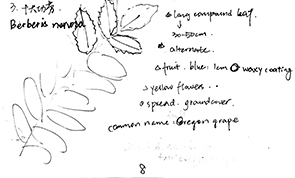 3. 十大功劳
Berberis nervosa
long compound leaf.
30-50cm
alternate.
fruit. blue. 1cm waxy coating
yellow flowers..
spread. groundcover.
common name: Oregon grape
8